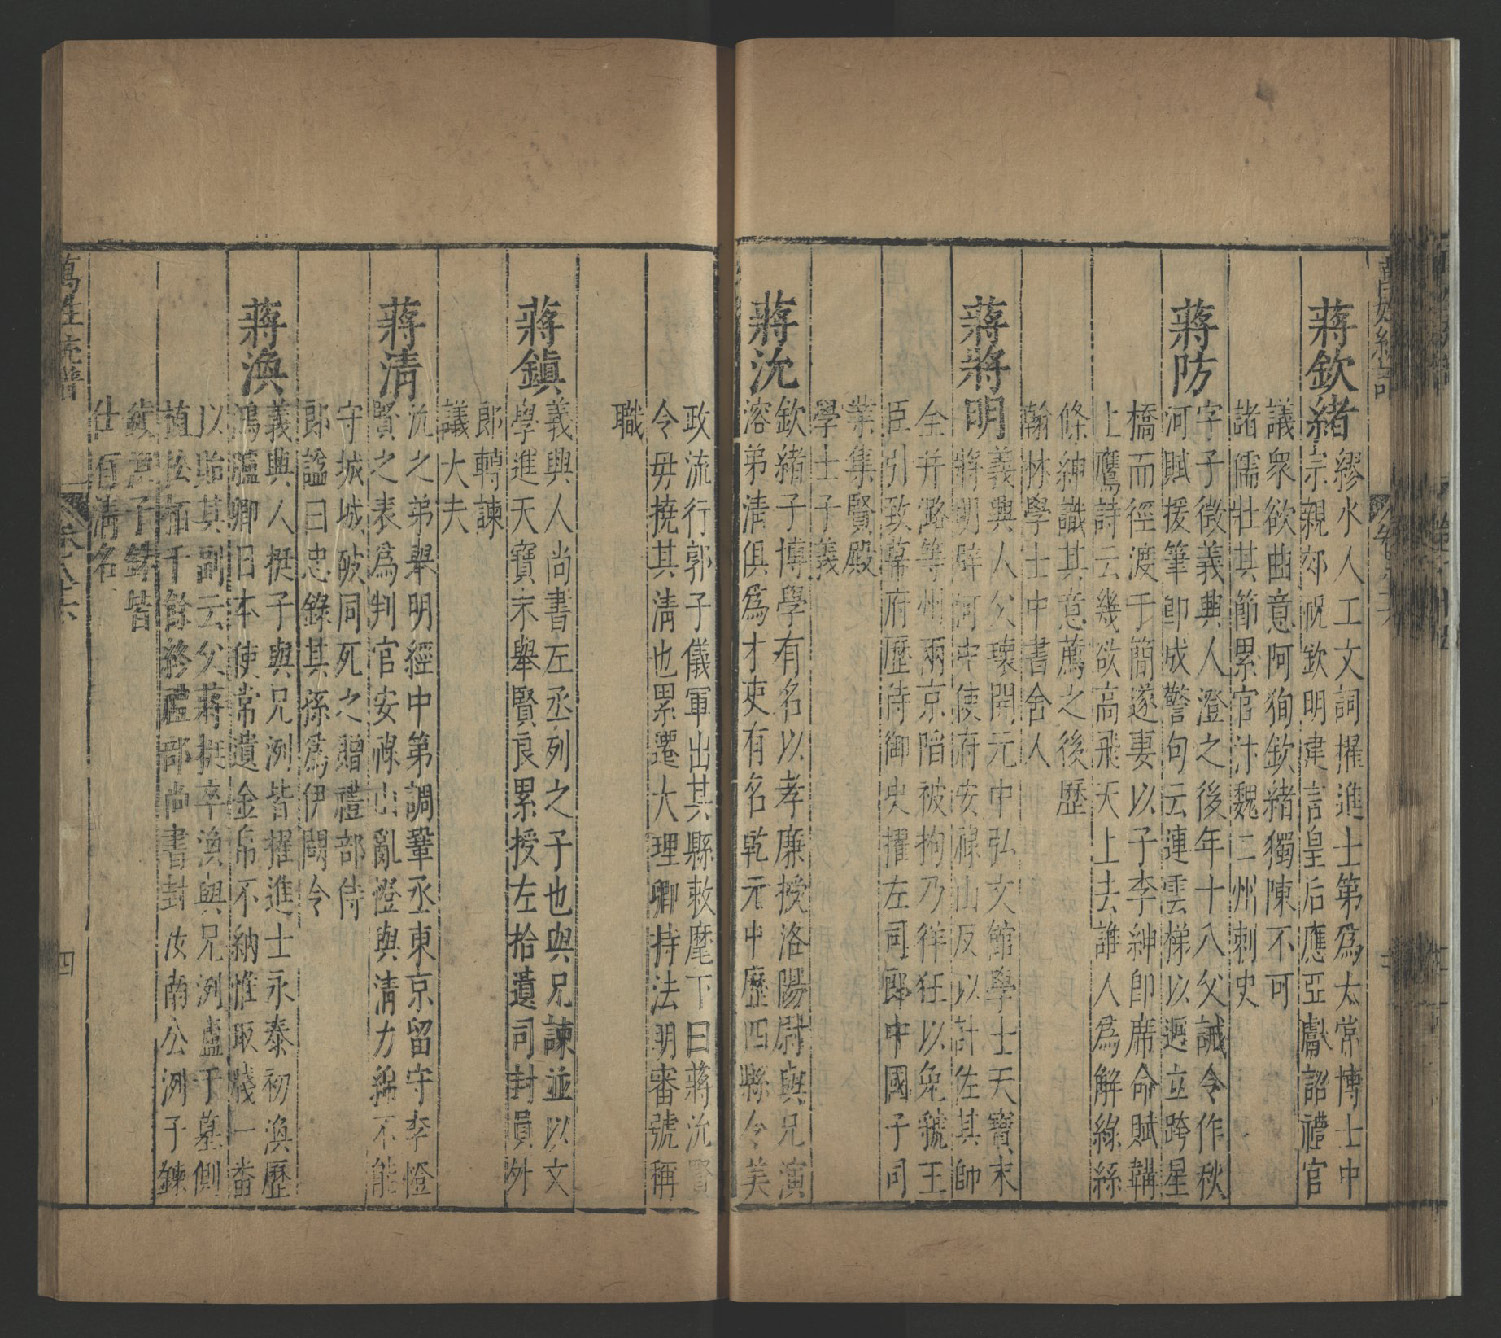 蔣欽緒
膠水人工文詞擢進士第爲太常博士中
宗親郊祝欽明建言皇后應亞獻詔禮官
議衆欲曲意阿狥欽緒獨陳不可
諸儒壯其節累官汴魏二州刺史
蔣防
字子徵義興人澄之後年十八父誡令作秋
河賦援筆即成警句云連雲梯以迥立跨星
橋而徑渡于簡遂妻以子李紳即席命賦鞲
上鷹詩云幾欲高飛天上去誰人爲解綠絲
絛紳識其意薦之後歷
翰林學士中書舍人
蔣將明
義興人父瓌開元中弘文館學士天寶末
將明辟河中使府安祿山反以計佐其帥
全并潞等州兩京陷被拘乃徉狂以免虢王
臣引致幕府歷侍御史擢左司郎中國子司
業集賢殿
學士子義
蔣沇
欽緒子博學有名以孝廉授洛陽尉與兄演
溶弟清俱爲才吏有名乾元中歷四縣令美
政流行郭子儀軍出其縣敕麾下曰蔣沇賢
令毋撓其清也累遷大理卿持法明審號稱
職
蔣鎮
義興人尚書左丞列之子也與兄諫並以文
學進天寶末舉賢良累授左拾遺司封員外
郎轉諫
議大夫
蔣清
沇之弟舉明經中第調鞏丞東京留守李憕
賢之表爲判官安祿山亂憕與清力綿不能
守城城破同死之贈禮部侍
郎諡曰忠錄其孫爲伊闕令
蔣渙
義興人挺子與兄洌皆擢進士永泰初渙歷
鴻臚卿日本使常遺金帛不納惟取牋一番
以貽其副云父蔣挺卒渙與兄洌盧于墓側
植松栢千餘終禮部尚書封汝南公洌子鍊
渙子銖皆
仕有清名
萬姓統譜
卷八十六
四